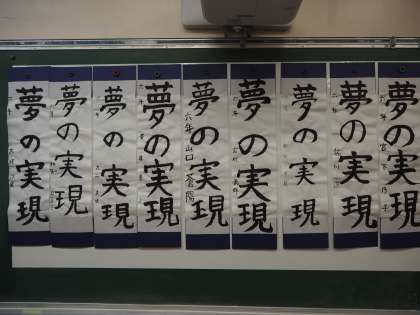 夢の実現
夢の実現
夢の実現
夢の実現
夢の実現
六年 山口 蒼陽
夢の実現
夢の実現
夢の実現
夢の実現